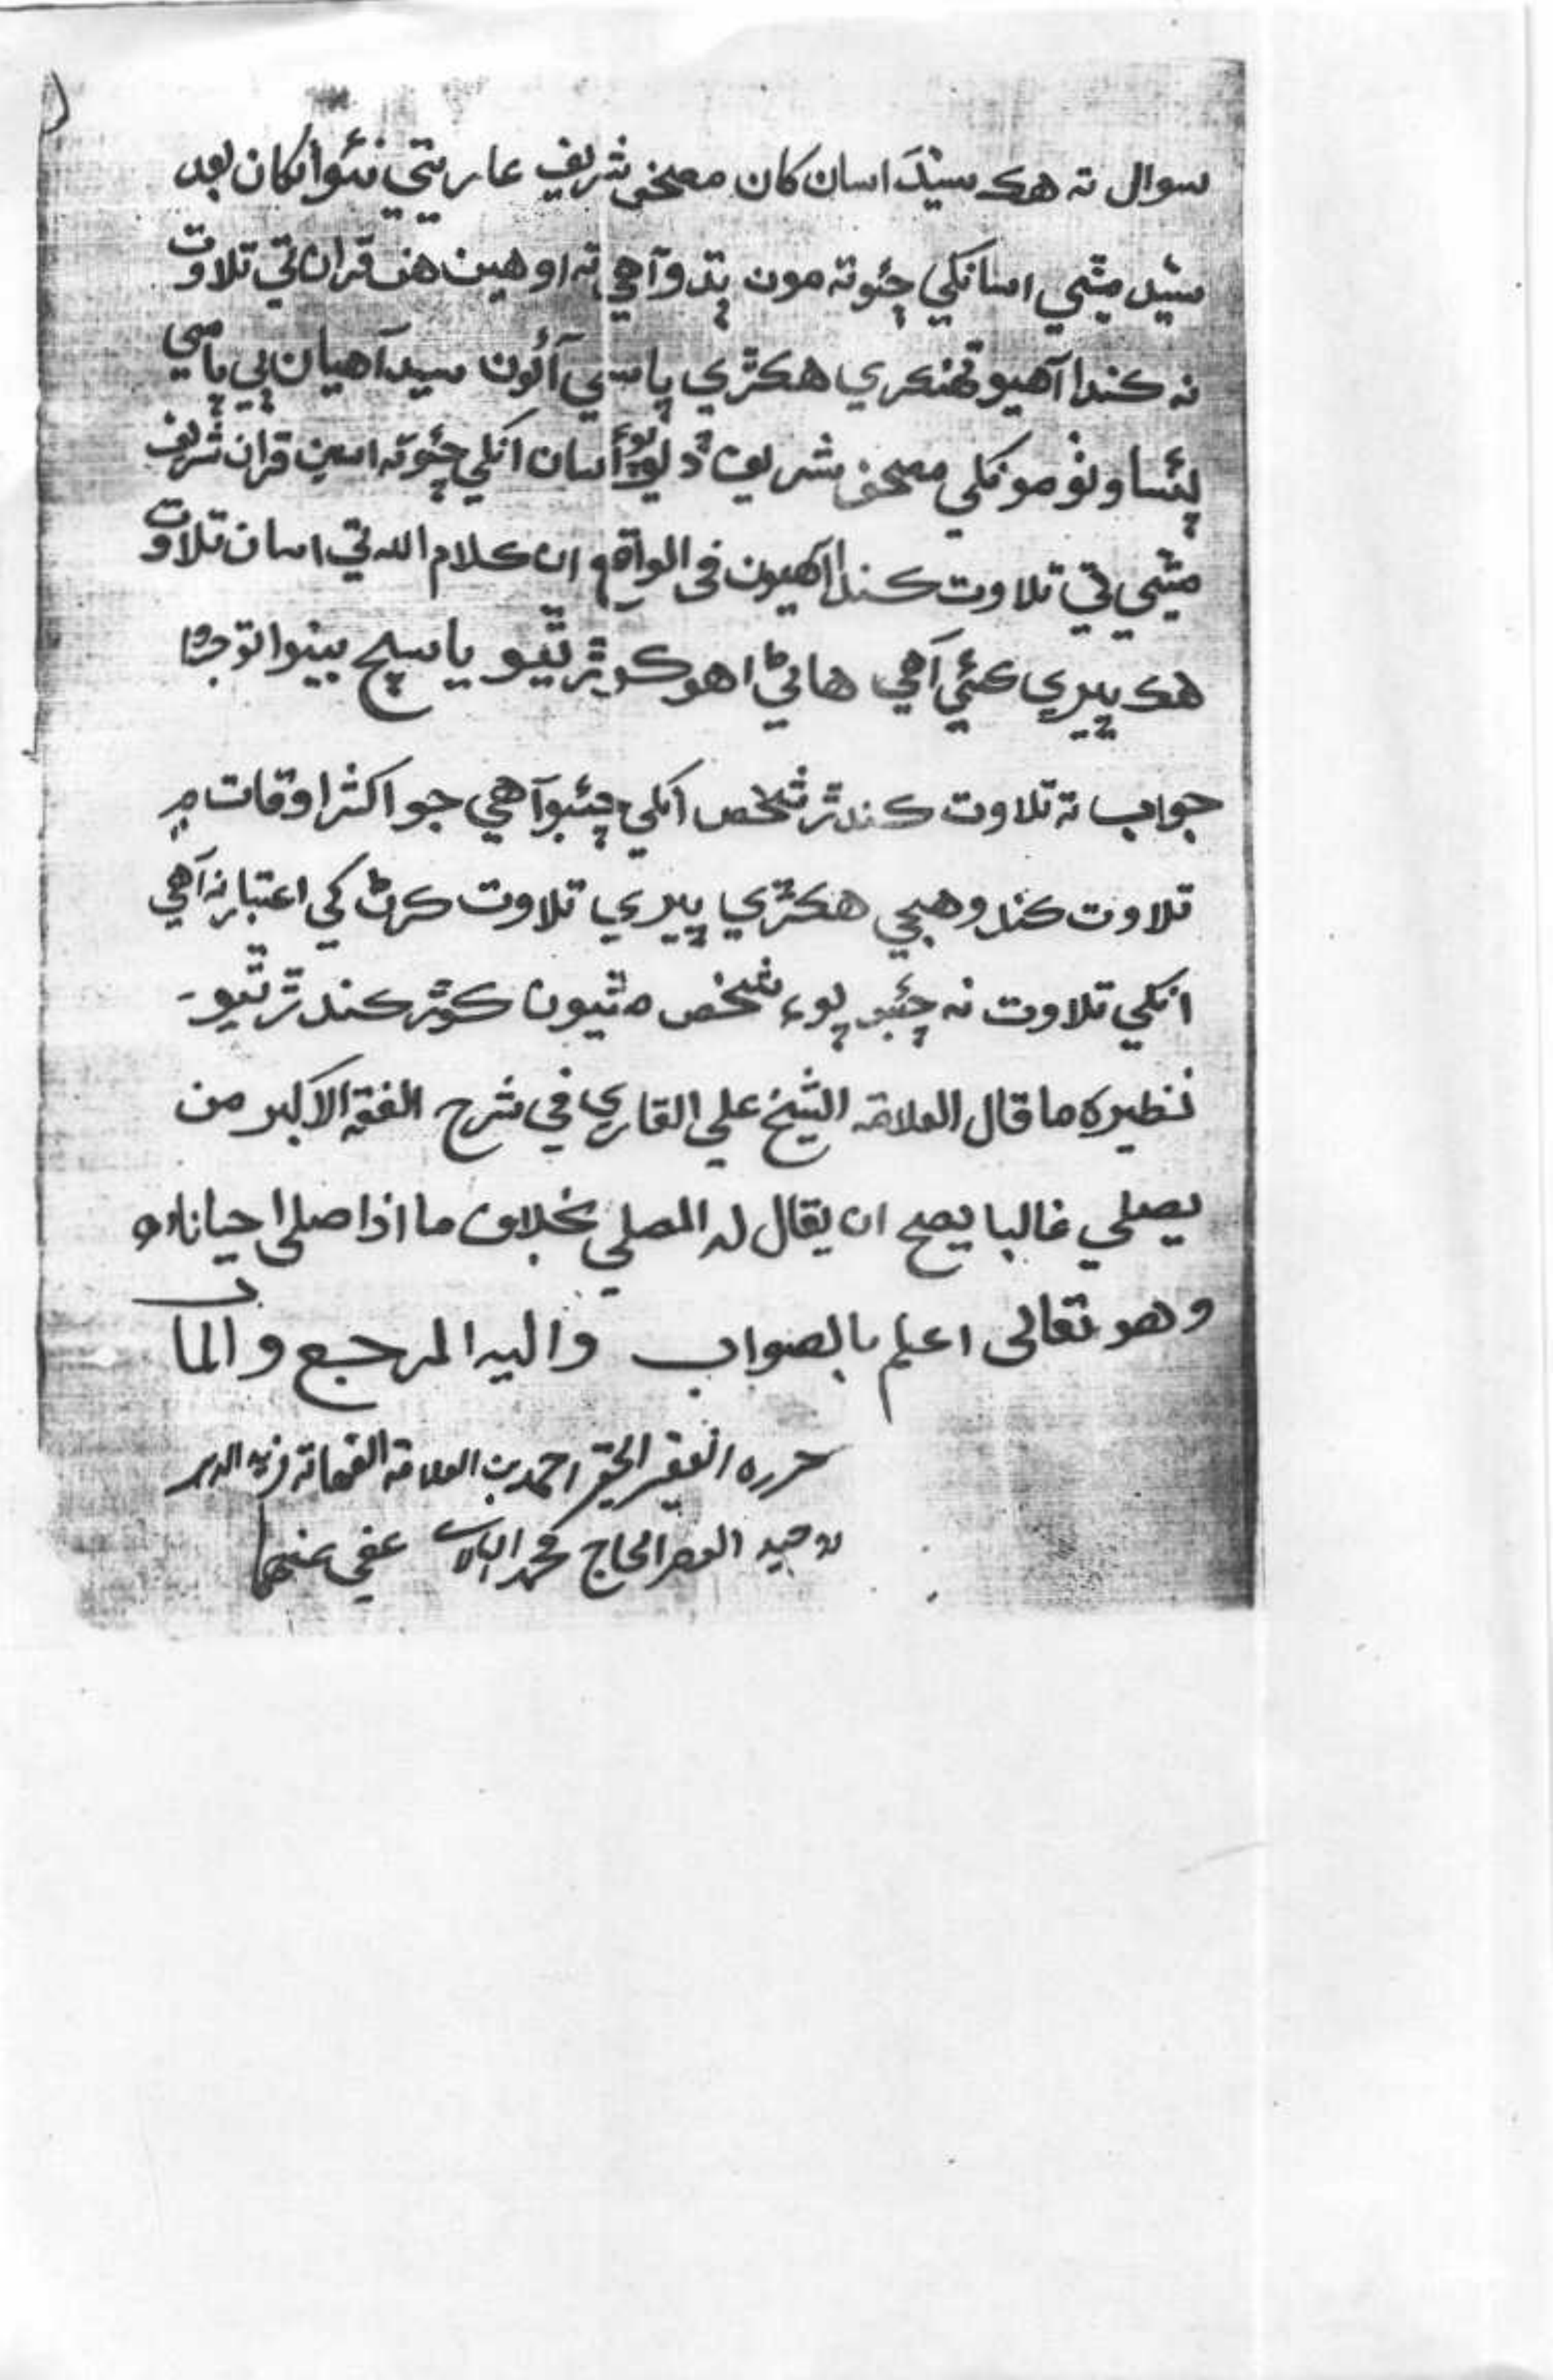 سوال ته هڪ سيد اسان کان مصحف شريف عاريتي نئو انکان بعد
سيد مٿمي اسانکي چئو ته مون ٻڌو آهي ته اوهين هن قران تي تلاوت
نه ڪندا آهيو تهنڪري هڪڙي پاسي آئون سيد آهيان ٻي پاسي
پئسا ونٺو مونکي مصحف شريف ڏيو پوءِ اسان انکي چئو ته اسين قران شريف
مٿمي تي تلاوت ڪندا آهيون في الواقع ان ڪلام الله تي اسان تلاوت
هڪ ڀيري ڪئي آهي هاڻي اهو ڪوڙ ٿيو يا سچ بينوا توجروا
جواب ته تلاوت ڪندڙ شخص انکي چئبو آهي جو اکثر اوقات ۾
تلاوت ڪندو هجي هڪڙي ڀيري تلاوت ڪرڻ کي اعتبار نه آهي
انکي تلاوت نه چئبو پوءِ شخص مٿيون ڪوڙ ڪندڙ ٿيو-
نظيره ما قال العلامة الشيخ علي القاري في شرح الفقه الاکبر من
يصلي غالبا يصح ان يقال له المصلي بخلاف ما اذا صلى احيانا اھ
وهو تعالى اعلم بالصواب واليه المرجع والمآب
حرره الفقير الحقير احمد بن العلامة الفهامة فريد الدهر
وحيد العصر الحاج محمد عفي عنهما